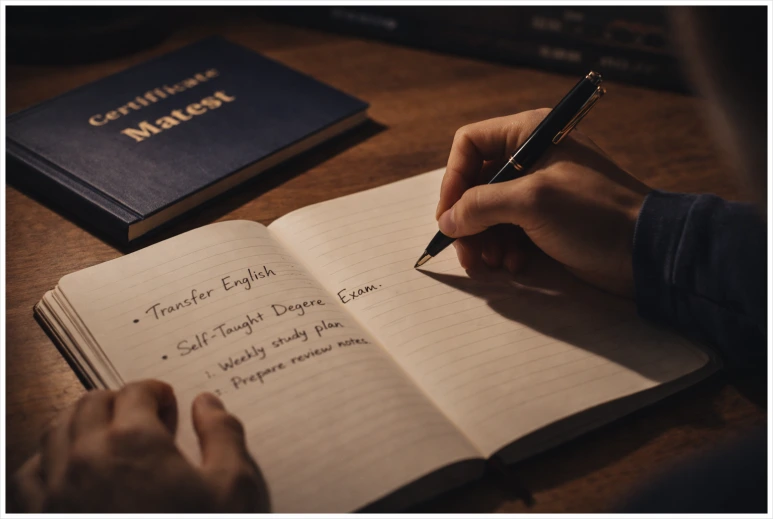 Certifficate
Matest
• Transfer English
• Self-Taught Degere Exam.
1. Weekly study plan
2. Prepare review notes